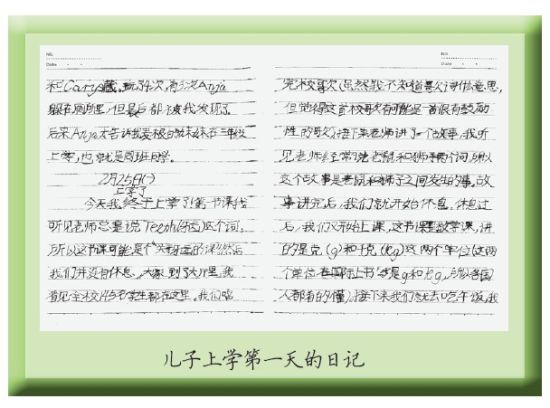 和Carys藏,玩了4次,有3次Anja
躲在厕所里,但最后都被我发现了。
后来Anja告诉我爱
上学,也就是同班同学。
2月25日(1)
上学了
今天我终于上学了!第一节课我
听见老师总是说Teeth(牙齿)这个词,
所以这节课可能是个关于牙齿的课!然后
我们并没有休息,大家到了大厅里,我
看见全校的学生都在这里。我们唱
完校歌以(虽然我不知道歌词什么意思,
但觉得这首校歌有可能是一首很有鼓励
性的歌)接下来老师讲了一个故事,我听
见老师经常说老鼠和狮子两个词,所以
这个故事是老鼠和狮子之间发生的事。故
事讲完后,我们就开始休息。休息过
后,我们又开始上课,这节课是数学课,讲
的是克(g)和千克(kg)这两个单位(这两
个单位在国际上书写是g和kg,所以各国
人都看的懂)接下来我们就去吃午饭,我
儿子上学第一天的日记